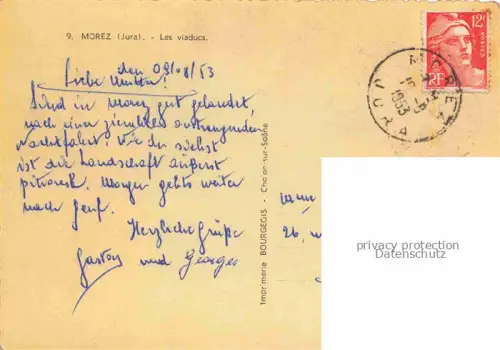 9. MOREZ (Jura). - Les viaducs.
den 09/08/53
Liebe Mutter!
Sind in Morez gut gelandet,
nach einer ziemlich anstrengenden
Nachtfahrt! Wie du siehst
ist die Landschaft äußerst
pitoresk. Morgen gehts weiter
nach Genf.
Herzliche Grüße
Gaston und Georges
Imprimerie BOURGEOIS - Chalon-sur-Saône
12F
POSTES
RF
MOREZ
1953
JURA
26,
privacy protection
Datenschutz